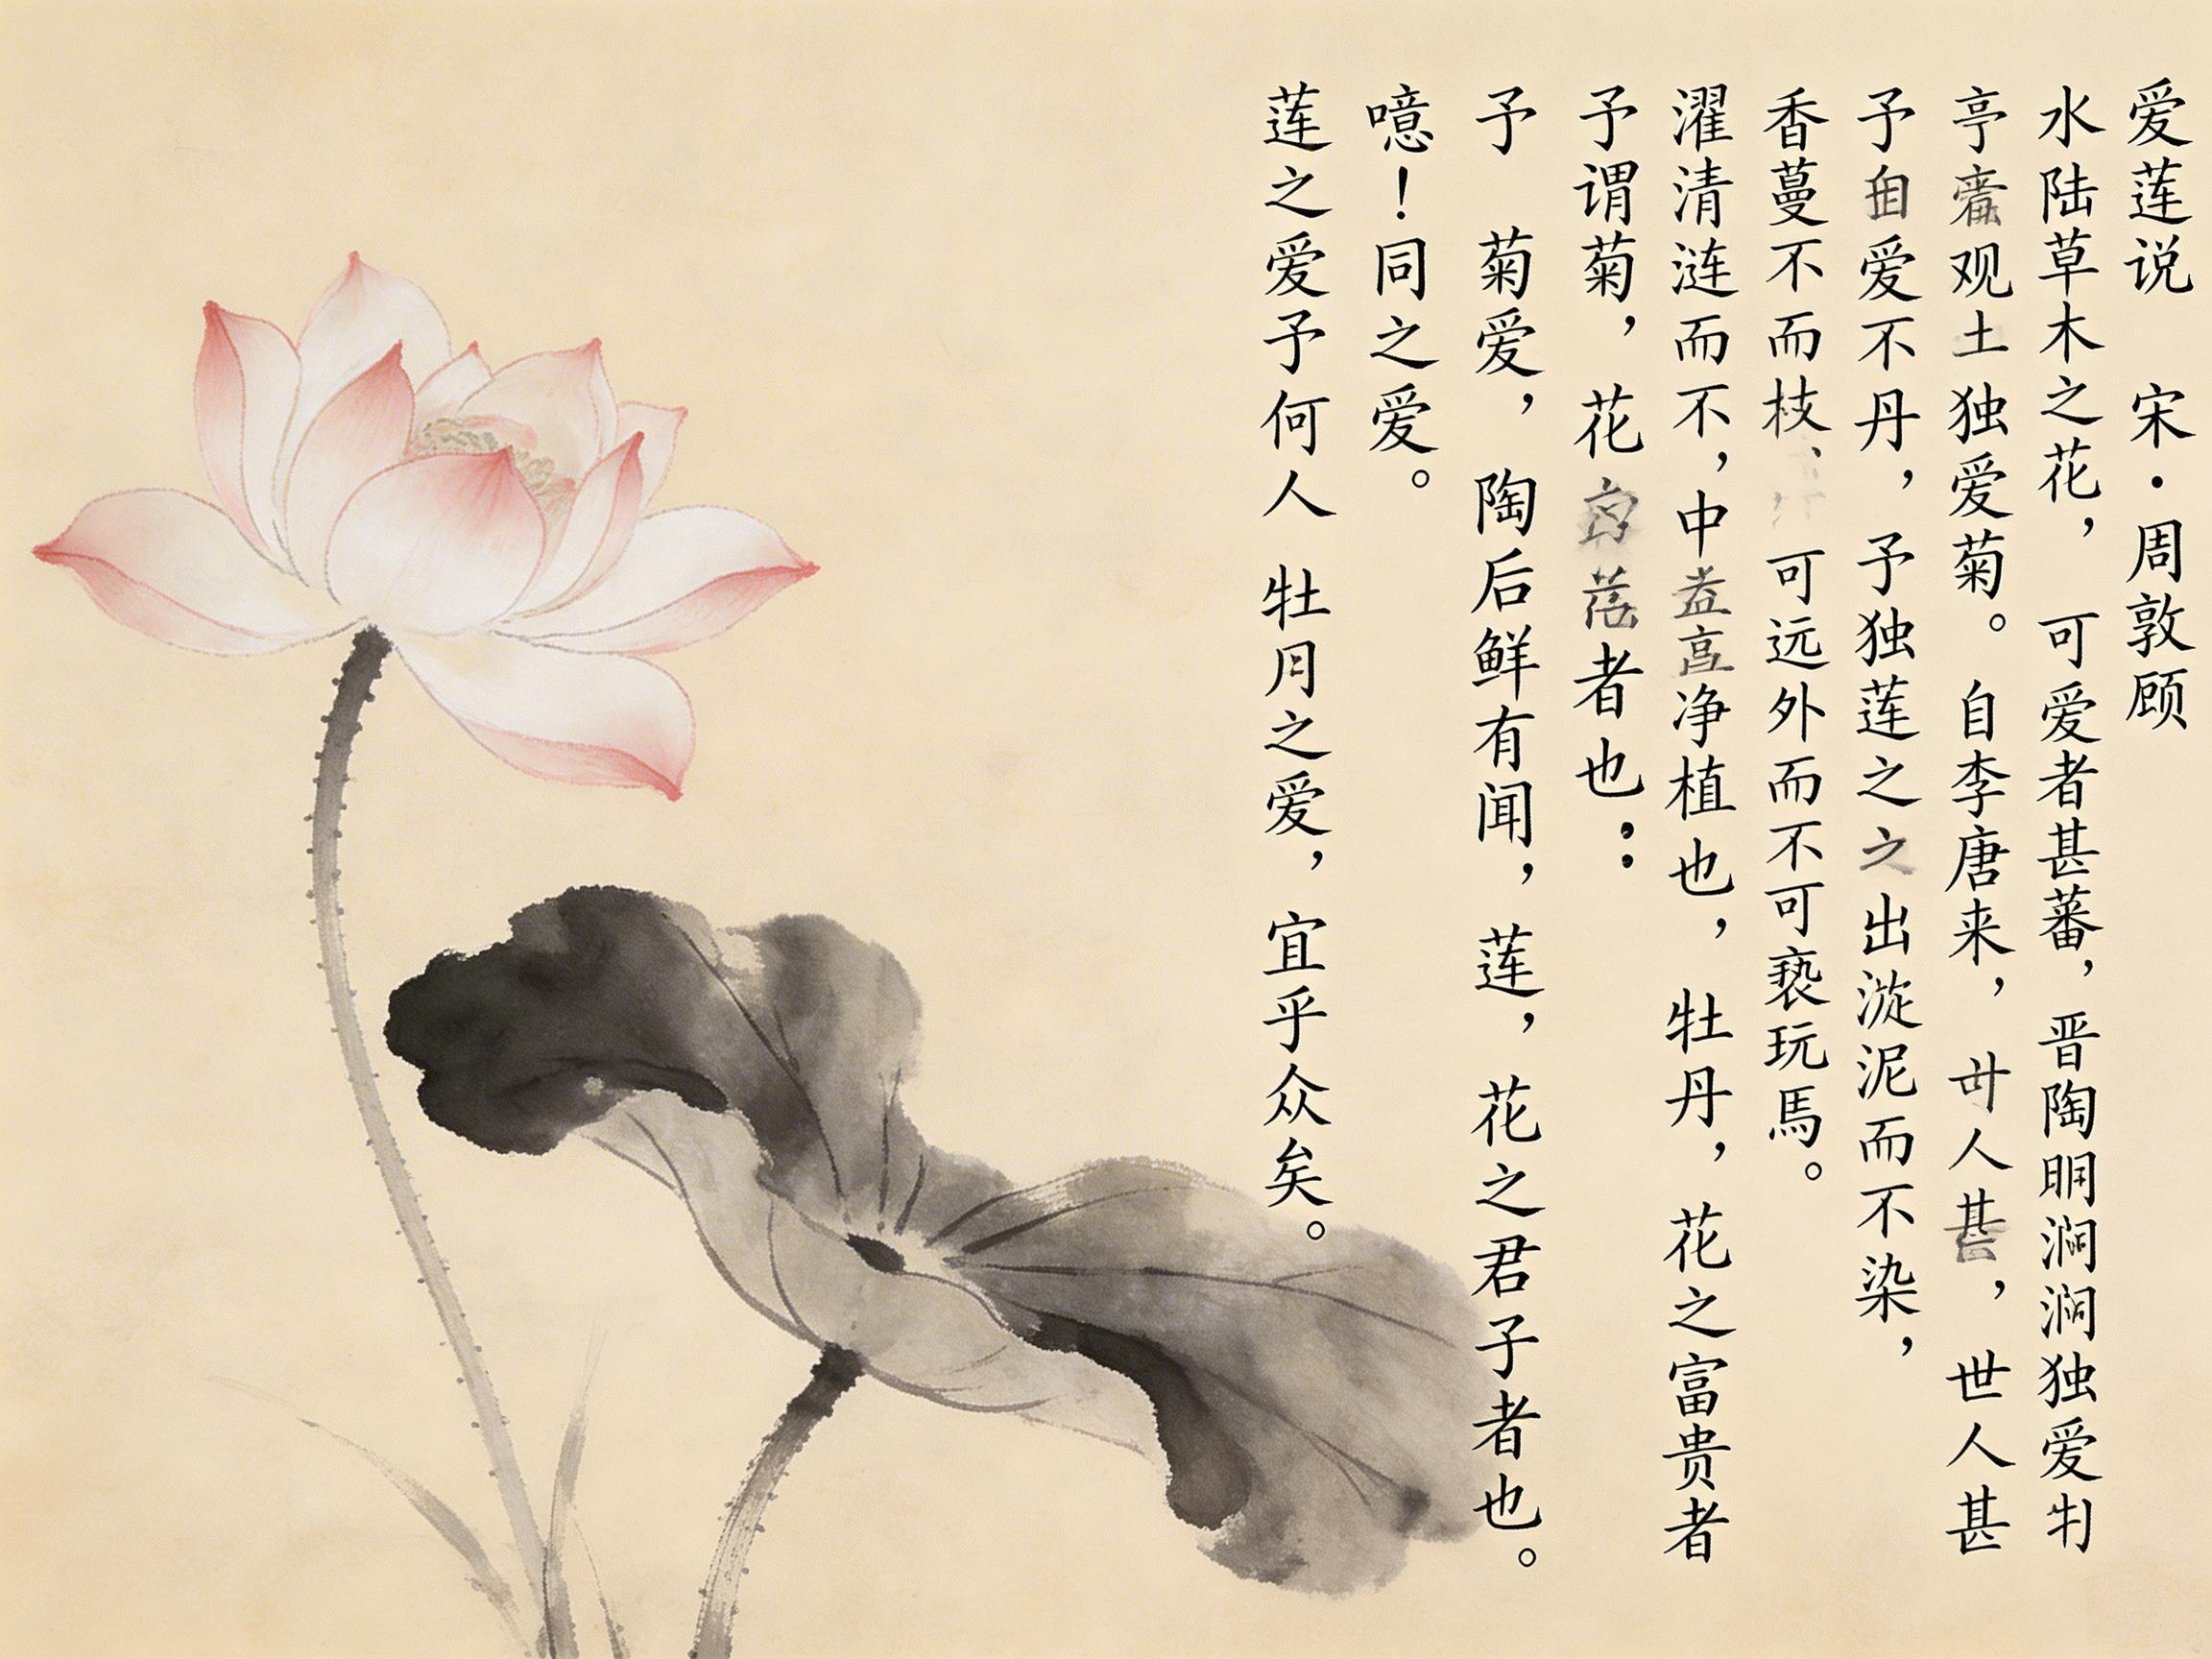 爱莲说 宋·周敦顾
水陆草木之花，可爱者甚蕃，晋陶明涧涧独爱
亭观土独爱菊。自李唐来，人，世人甚
予爱不丹，予独莲之之出淤泥而不染，
香蔓不而枝、可远外而不可亵玩馬。
濯清涟而不，中净植也，牡丹，花之富贵者
予谓菊，花者也；
予 菊爱，陶后鲜有闻，莲，花之君子者也。
噫！同之爱。
莲之爱予何人 牡月之爱，宜乎众矣。